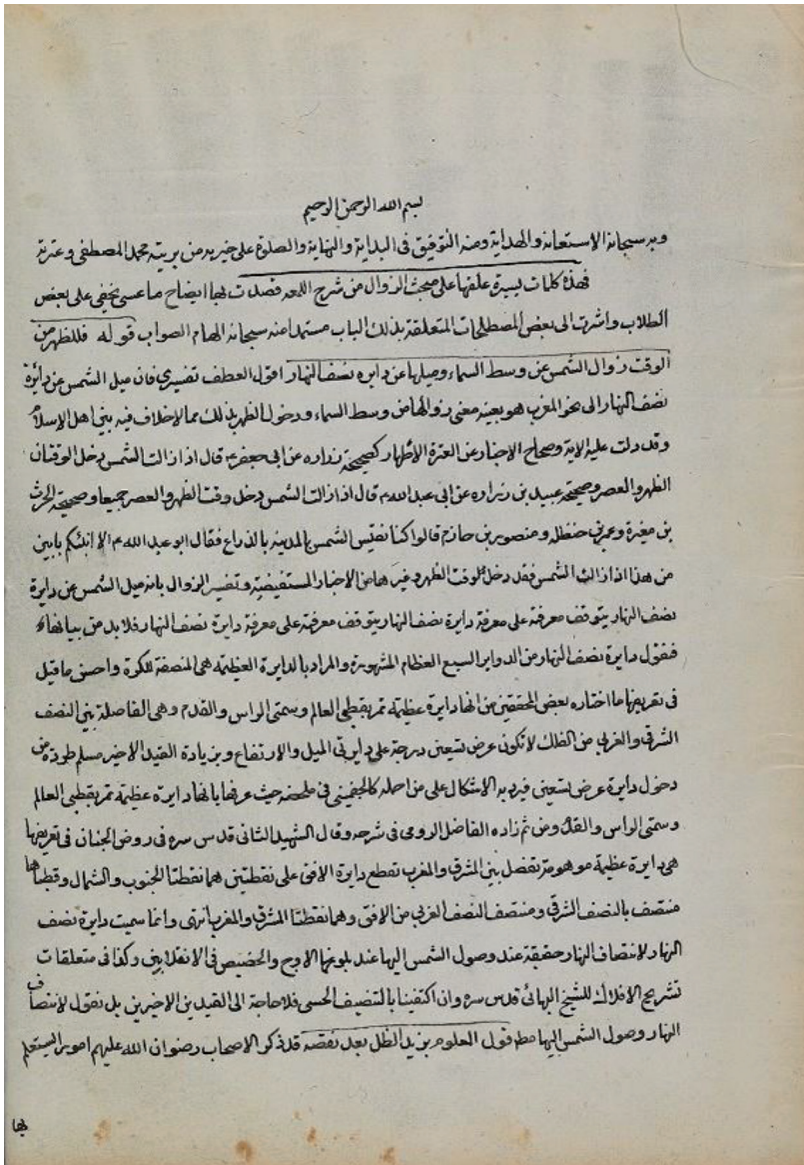 بسم الله الرحمن الرحيم
وبه سبحانه الاستعانة والهداية ومنه التوفيق فى البداية والنهاية والصلوة على خيرته من بريته محمد المصطفى وعترته
فهذه كلمات يسيرة علقتها على مبحث الزوال من شرح اللمعه قصدت بها ايضاح ما عسى يخفى على بعض
الطلاب واشرت الى بعض المصطلحات المتعلقة بذلك الباب مستمدا منه سبحانه الهام الصواب قوله فللظهر من
الوقت زوال الشمس عن وسط السماء وميلها عن دايره نصف النهار اقول العطف تفسيرى فان ميل الشمس عن دايرة
نصف النهار الى نحو المغرب هو بعينه معنى زوالها عن وسط السماء ودخول الظهر بذلك مما لاخلاف فيه بين اهل الاسلام
وقد دلت عليه الاية وصحاح الاخبار عن العترة الاطهار كصحيحة زراره عن ابى جعفر ع قال اذا زالت الشمس دخل الوقتان
الظهر والعصر وصحيحة عبيد بن زراره عن ابى عبد الله ع قال اذا زالت الشمس دخل وقت الظهر والعصر جميعا وصحيحة الحرث
بن مغيرة وعمر بن حنظله ومنصور بن حازم قالوا كنا نقيس الشمس بالمدينه بالذراع فقال ابو عبد الله ع الا انبئكم بابين
من هذا اذا زالت الشمس فقد دخل وقت الظهر وغيرها من الاخبار المستفيضة وتفسير الزوال بانه ميل الشمس عن دايرة
نصف النهار يتوقف معرفته على معرفة دايرة نصف النهار يتوقف معرفته على معرفة دايرة نصف النهار فلابد من بيانها
فنقول دايرة نصف النهار من الدواير السبع العظام المشهورة والمراد بالدايرة العظيمه هى المنصفة للكرة واحسن ما قيل
فى تعريفها ما اختاره بعض المحققين من انها دايرة عظيمة تمر بقطبى العالم وسمتى الراس والقدم وهى الفاصلة بين النصف
الشرقى والغربى من الفلك لا تكون عرض تسعين درجة على دايرتى الميل والارتفاع وبزيادة القيد الاخير مسلم طرده من
دخول دايرة عرض تسعين فيرد به الاشكال على من اهمله كالجغمينى فى ملخصه حيث عرفها بانها دايرة عظيمة تمر بقطبى العالم
وسمتى الراس والقدم ومن ثم زاده الفاضل الرومى فى شرحه وقال الشهيد الثانى قدس سره فى روض الجنان فى تعريفها
هى دايرة عظيمة موهومة تفصل بين المشرق والمغرب تقطع دايرة الافق على نقطتين هما نقطتا الجنوب والشمال وقطباها
منتصف بالنصف الشرقى ومنتصف النصف الغربى من الافق وهما نقطتا المشرق والمغرب انتهى وانما سميت دايرة نصف
النهار لانتصاف النهار حقيقة عند وصول الشمس اليها عند بلوغها الاوج والحضيض فى الانقلابين وكذا فى متعلقات
تشريح الافلاك للشيخ البهائى قدس سره وان اكتفينا بالتنصيف الحسى فلا حاجة الى القيدين الاخيرين بل نقول لانتصاف
النهار وصول الشمس اليها مطم قوله المعلوم بزيد الظل بعد نقصه قد ذكر الاصحاب رضوان الله عليهم امورا يستعلم
بها